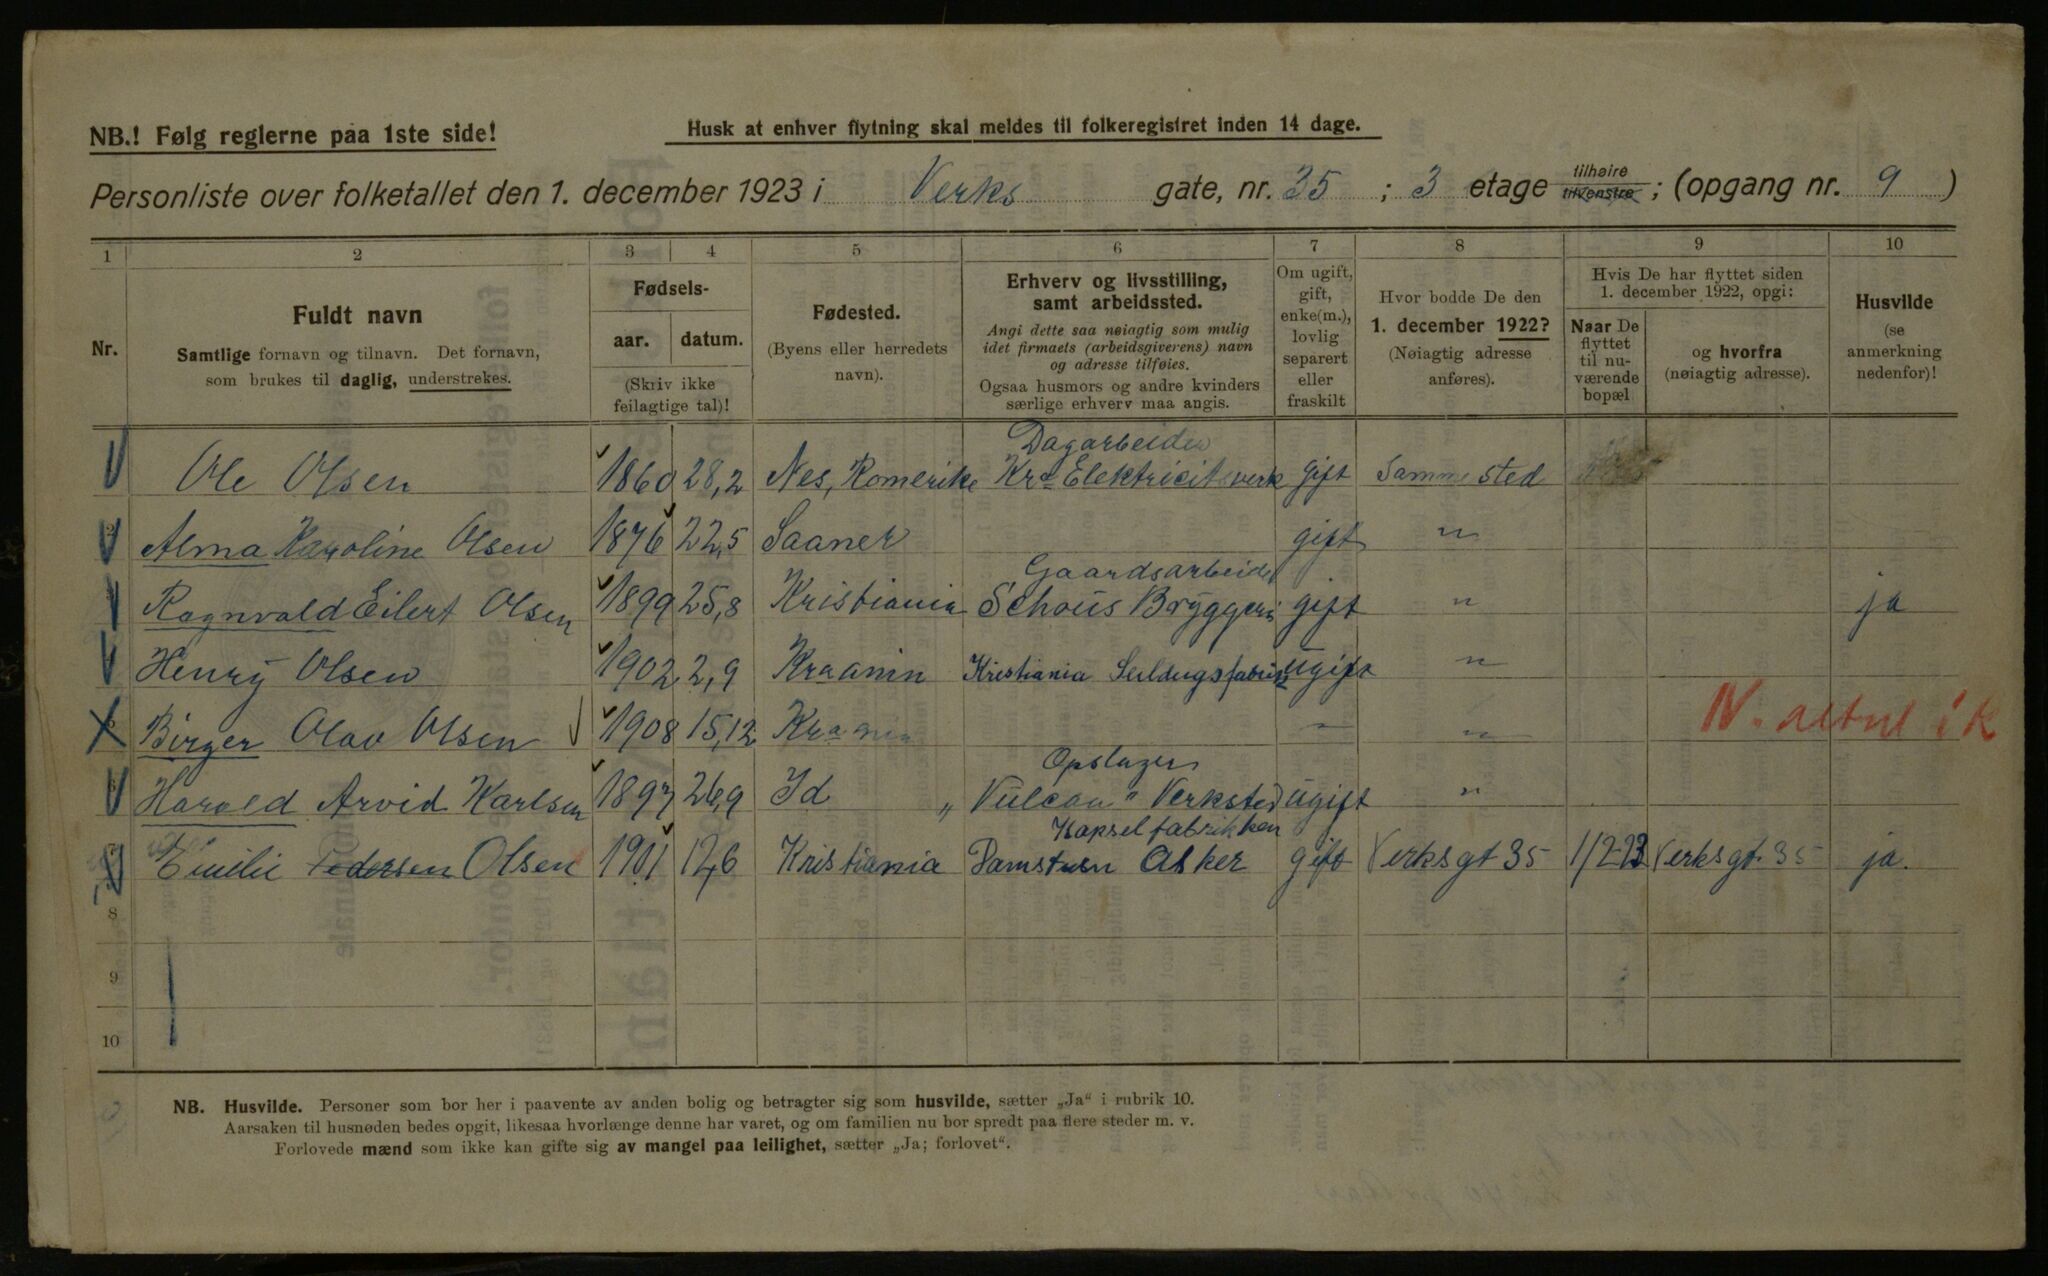 NB.! Følg reglerne paa 1ste side!
Husk at enhver flytning skal meldes til folkeregistret inden 14 dage.
Personliste over folketallet den 1. december 1923 i Verks gate, nr. 35 ; 3 etage tilhøire tilvenstre ; (opgang nr. 9 )
1 2 3 4 5 6 7 8 9 10
Nr.
Fuldt navn
Samtlige fornavn og tilnavn. Det fornavn,
som brukes til daglig, understrekes.
Fødsels-
aar. datum.
(Skriv ikke
feilagtige tal)!
Fødested.
(Byens eller herredets
navn).
Erhverv og livsstilling,
samt arbeidssted.
Angi dette saa nøiagtig som mulig
idet firmaets (arbeidsgiverens) navn
og adresse tilføies.
Ogsaa husmors og andre kvinders
særlige erhverv maa angis.
Om ugift,
gift,
enke(m.),
lovlig
separert
eller
fraskilt
Hvor bodde De den
1. december 1922?
(Nøiagtig adresse
anføres).
Hvis De har flyttet siden
1. december 1922, opgi:
Naar De
flyttet
til nu-
værende
bopæl
og hvorfra
(nøiagtig adresse).
Husvilde
(se
anmerkning
nedenfor)!
Dagarbeider
Ole Olsen 1860 28,2 Nes, Romerike Kra Elektricitsverk gift Samme sted
Alma Karoline Olsen 1876 22,5 Saaner gift "
Gaardsarbeider
Ragnvald Eilert Olsen 1899 25,8 Kristiania Schous Bryggeri gift " ja
Henry Olsen 1902 2,9 Kraania Kristiania Seildugsfabrik Ugift "
Birger Olav Olsen 1908 15,12 Kraania " "
Opslager
Harald Arvid Karlsen 1897 26,9 Id "Vulcan" Verksted Ugift "
Kapselfabrikken
Emilie Pedersen Olsen 1901 12,6 Kristiania Damstuen Asker gift Verksgt 35 1/2-23 Verksgt. 35 ja.
8
9
10
NB. Husvilde. Personer som bor her i paavente av anden bolig og betragter sig som husvilde, sætter „Ja“ i rubrik 10.
Aarsaken til husnøden bedes opgit, likesaa hvorlænge denne har varet, og om familien nu bor spredt paa flere steder m. v.
Forlovede mænd som ikke kan gifte sig av mangel paa leilighet, sætter „Ja; forlovet“.